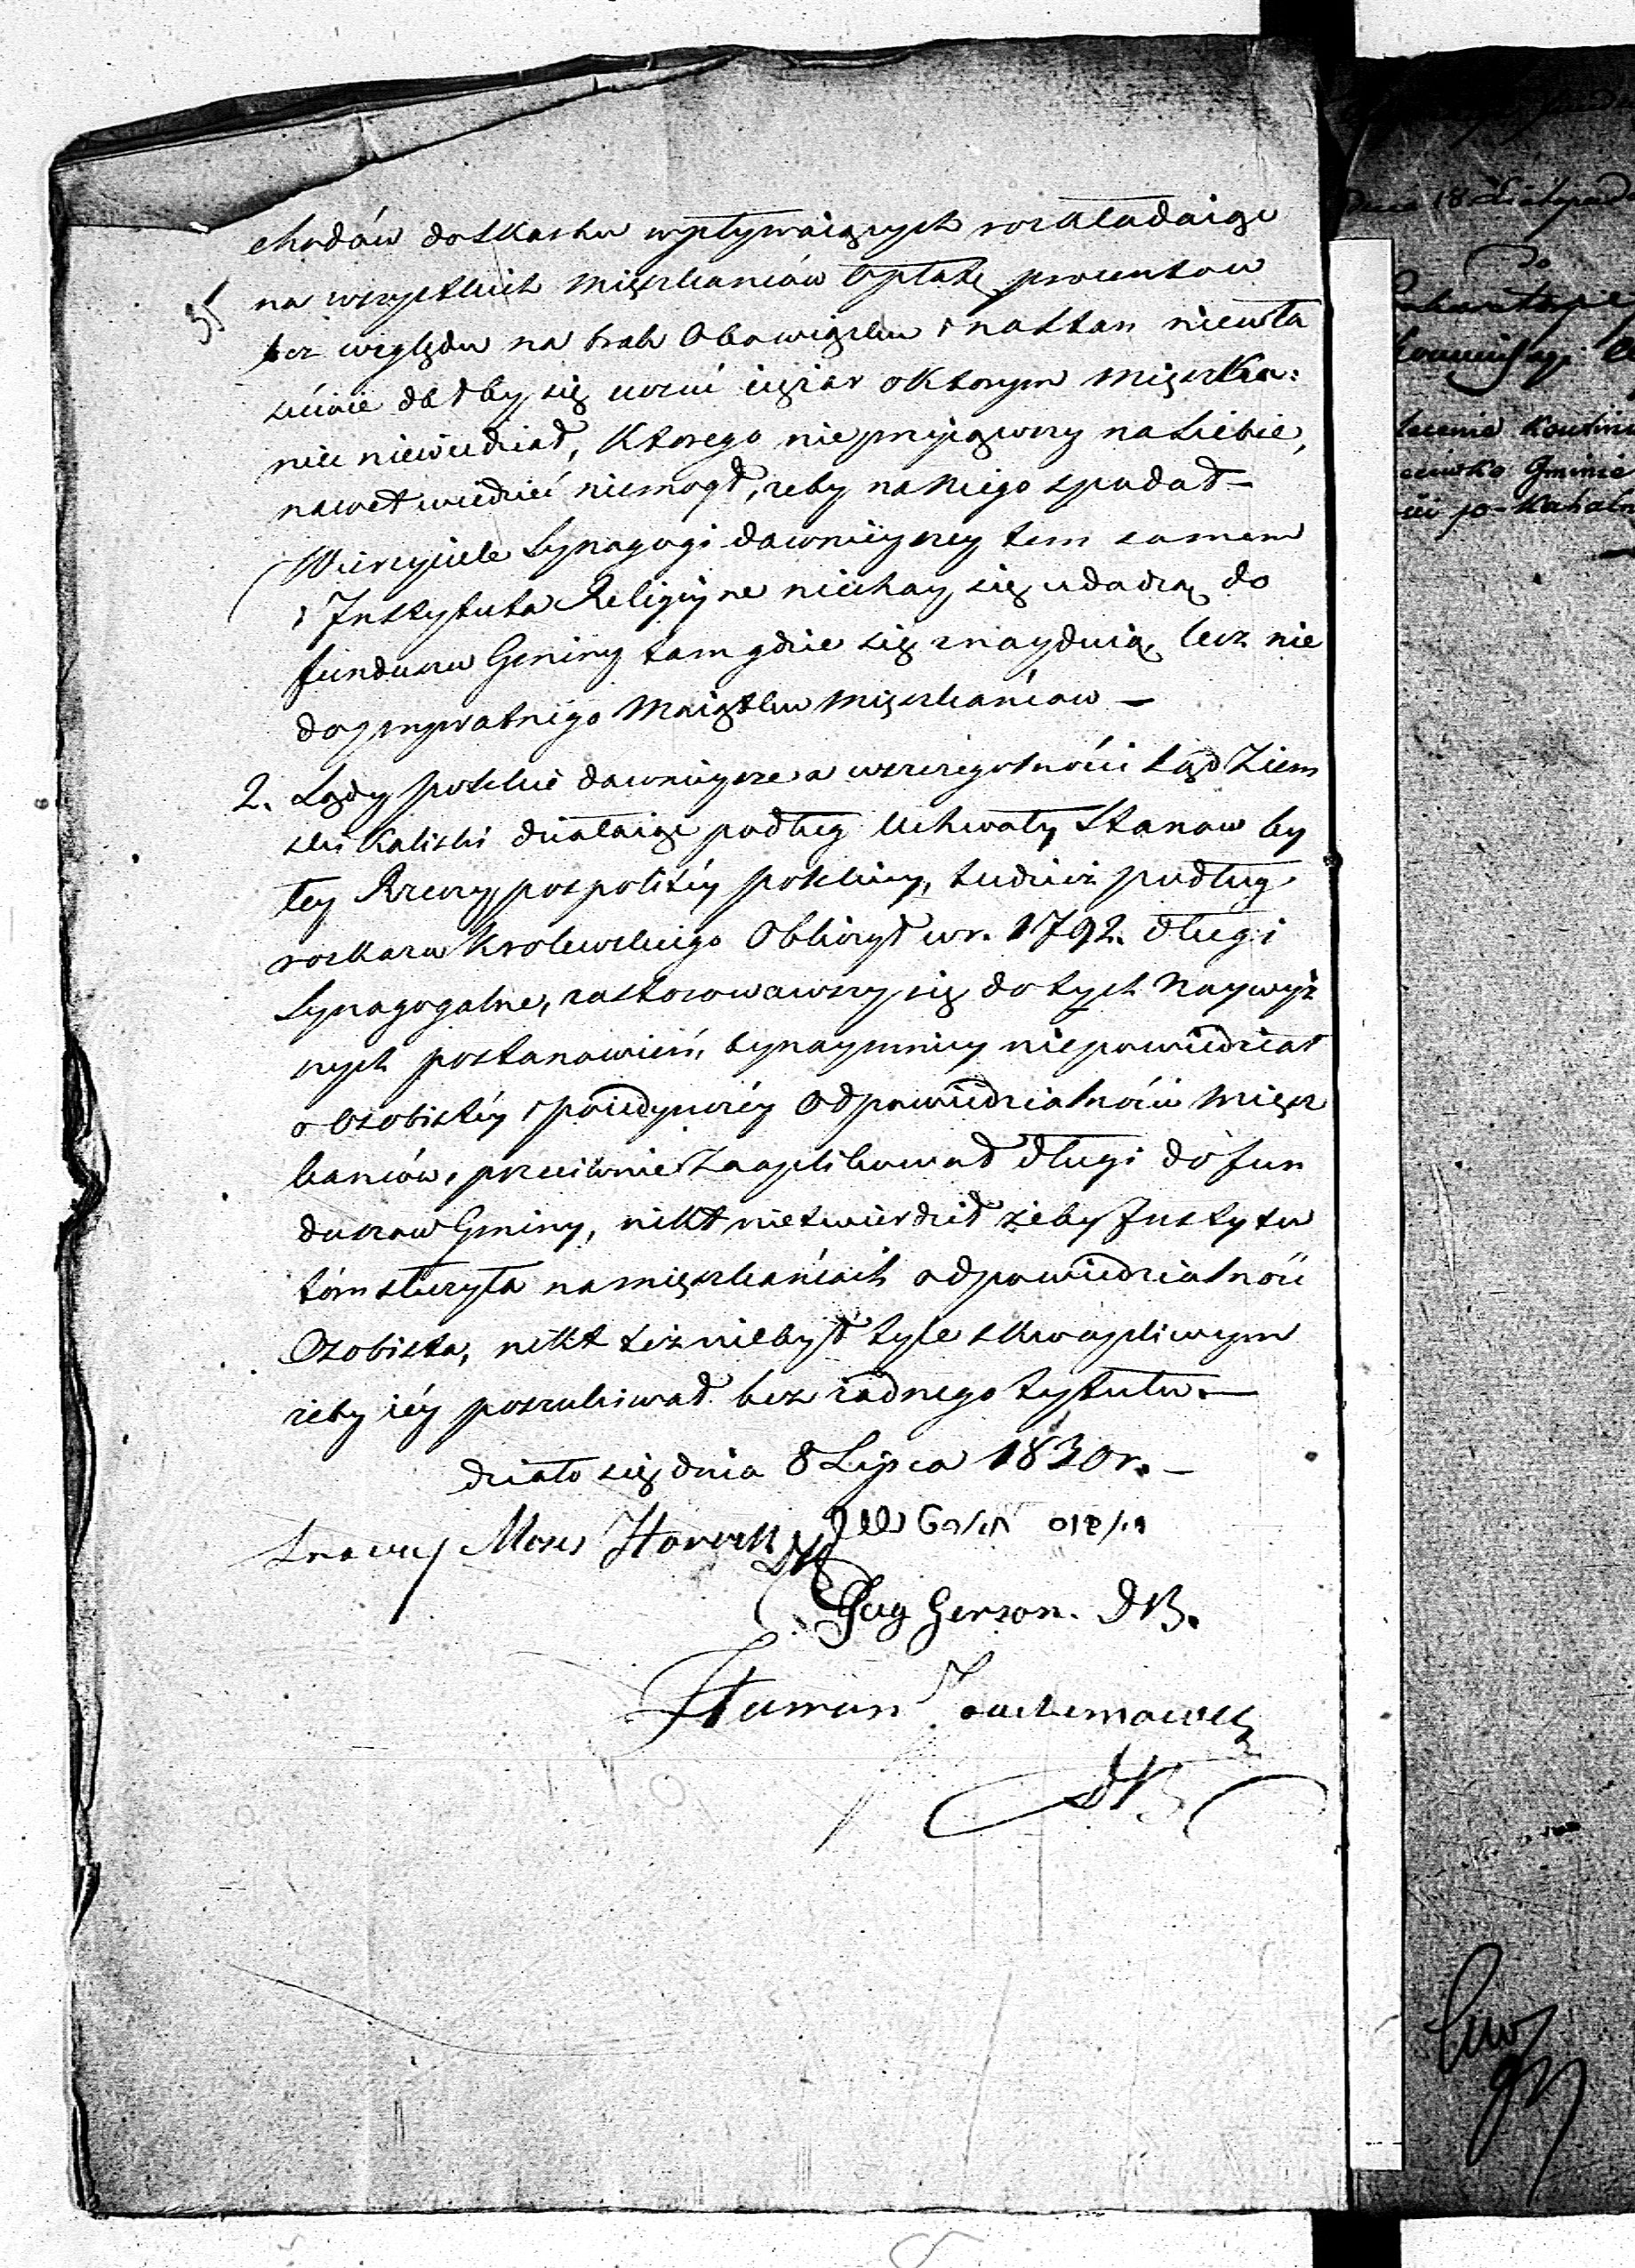 chodów do skarbu wpływaiących rozkładaiąc
na wszystkich mięszkańców opłatę procentow
bez względu na brak obowiązku i na stan niewła
ściwie dałby się uczuć ciężar o ktorym mięszka:
niec niewiedział, ktorego nieprzyiąwszy na siebie,
nawet wiedzieć niemogł, żeby na niego spadał –
Wierzyciele Synagogi dawnieyszey tem samem
i Instytuta Religiyne niechay się udadzą do
funduszu Gminy tam gdzie się znayduią, lecz nie
do prywatnego Maiątku mięszkańcow –
2. Sądy polskie dawnieysze a wszczegolności Sąd Ziem
ski Kaliski działaiąc podług Uchwały Stanow by
łey Rzeczypospolitéy polskiey, tudzież podług
rozkazu Krolewskiego obliczył w r. 1792. długi
Synagogalne, zastosowawszy się do tych Naywyż
szych postanowień, bynaymniey niepowiedział
o osobistéy i poiedynczéy odpowiedzialności mięsz
kańców, przeciwnie zaaplikował długi do fun
duszow Gminy, nikt nietwierdził żeby Instytu
tóm służyła na mięszkańcach odpowiedzialność
Osobista, nikt też niebył tyle skwapliwym
żeby iéy poszukiwał bez żadnego tytułu. –
działo się dnia 8 Lipca 1830 r. –
Moses
Gerson. DB.
DB
35
dnia 18 Listopada
Do
Gminie